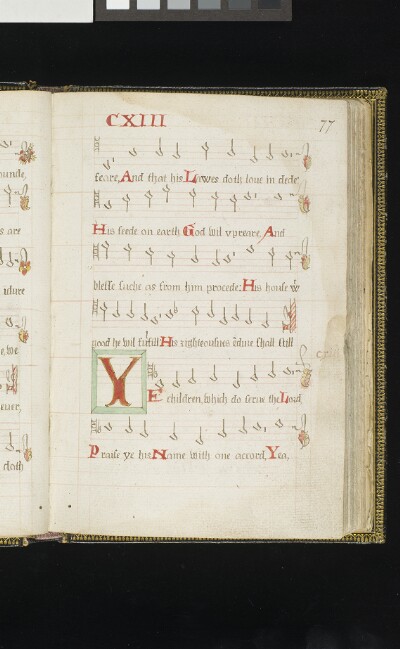 CXIII
77
feare, And that his Lawes doth loue in dede
His seede on earth God wil vpreare, And
blesse suche as from him procede: His house wt
good he wil fulfill His righteousnes edure shall still
YE children, which do serue the Lord,
Praise ye his Name with one accord, Yea,
ounde,
s are
ndure
e, we
euer,
doth